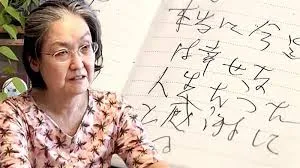 本当に今迄
は幸せな
人生だった
と感謝して